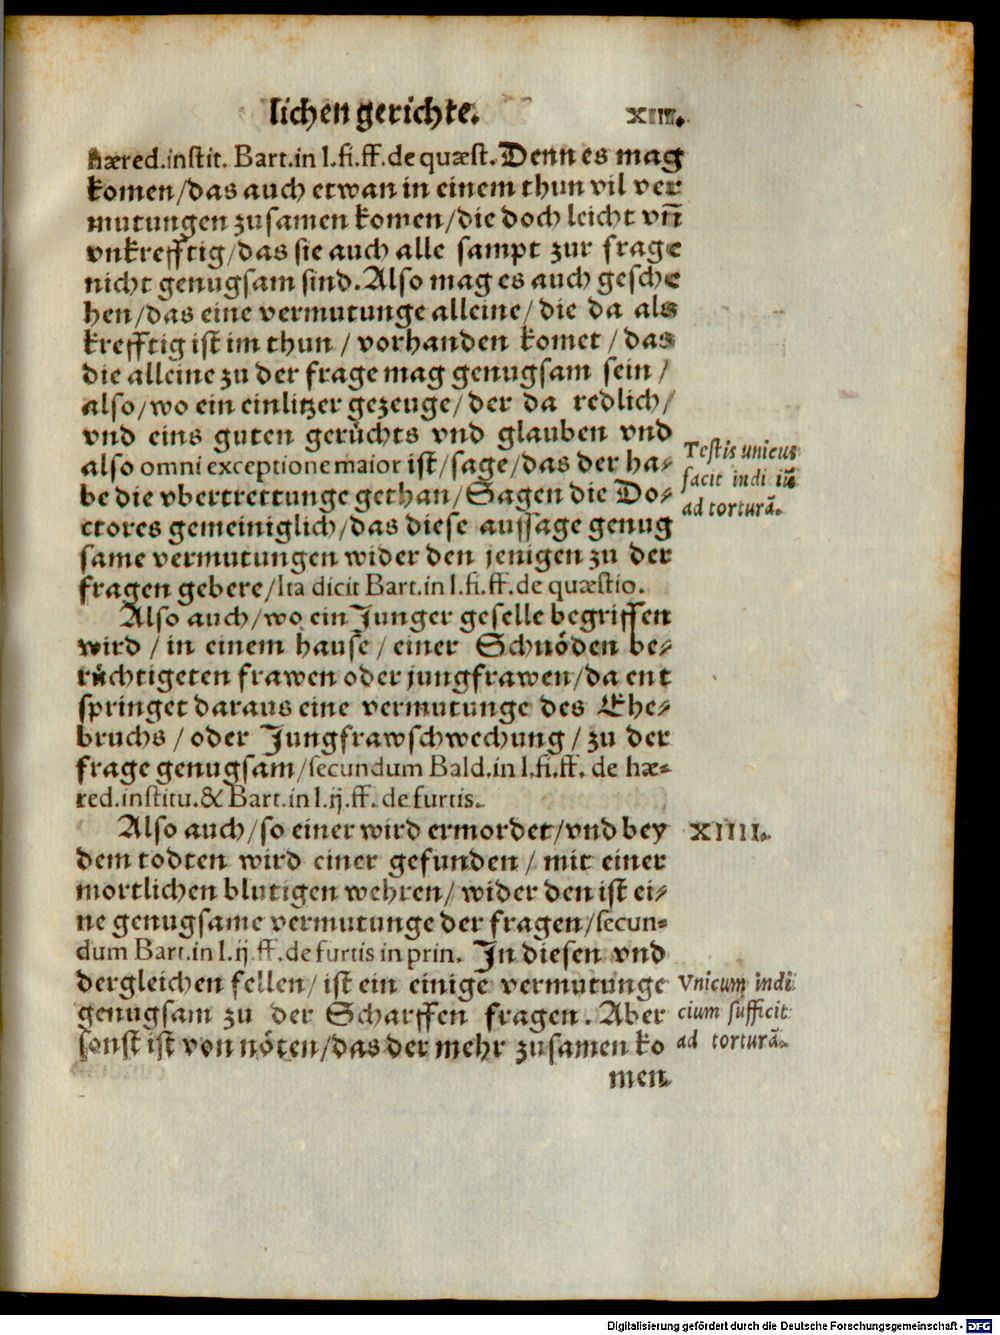 lichen gerichte. XIII.
hæred.instit. Bart.in l.fi.ff.de quæst. Denn es mag
komen/das auch etwan in einem thun vil ver
mutungen zusamen komen/die doch leicht vñ
vnkrefftig/das sie auch alle sampt zur frage
nicht genugsam sind. Also mag es auch gesche
hen/das eine vermutunge alleine/die da als
krefftig ist im thun/vorhanden komet/das
die alleine zu der frage mag genugsam sein/
also/wo ein einlitzer gezeuge/der da redlich/
vnd eins guten gerüchts vnd glauben vnd
also omni exceptione maior ist/sage/das der ha⸗
be die vbertrettunge gethan/Sagen die Do⸗
ctores gemeiniglich/das diese aussage genug
same vermutungen wider den jenigen zu der
fragen gebere/Ita dicit Bart.in l.fi.ff.de quæstio.
Testis unicus
facit indi iũ
ad torturã.
Also auch/wo ein Junger geselle begriffen
wird/in einem hause/einer Schnöden be⸗
rüchtigeten frawen oder jungfrawen/da ent
springet daraus eine vermutunge des Ehe⸗
bruchs/oder Jungfrawschwechung/zu der
frage genugsam/secundum Bald.in l.fi.ff. de hæ⸗
red.institu.& Bart.in l.ij.ff.de furtis.
Also auch/so einer wird ermordet/vnd bey
dem todten wird einer gefunden/mit einer
mortlichen blutigen wehren/wider den ist ei⸗
ne genugsame vermutunge der fragen/secun⸗
dum Bart.in l.ij.ff.de furtis in prin. In diesen vnd
dergleichen fellen/ist ein einige vermutunge
genugsam zu der Scharffen fragen. Aber
sonst ist von nöten/das der mehr zusamen ko
men
XIIII.
Vnicum indi
cium sufficit
ad torturã.
Digitalisierung gefördert durch die Deutsche Forschungsgemeinschaft - DFG